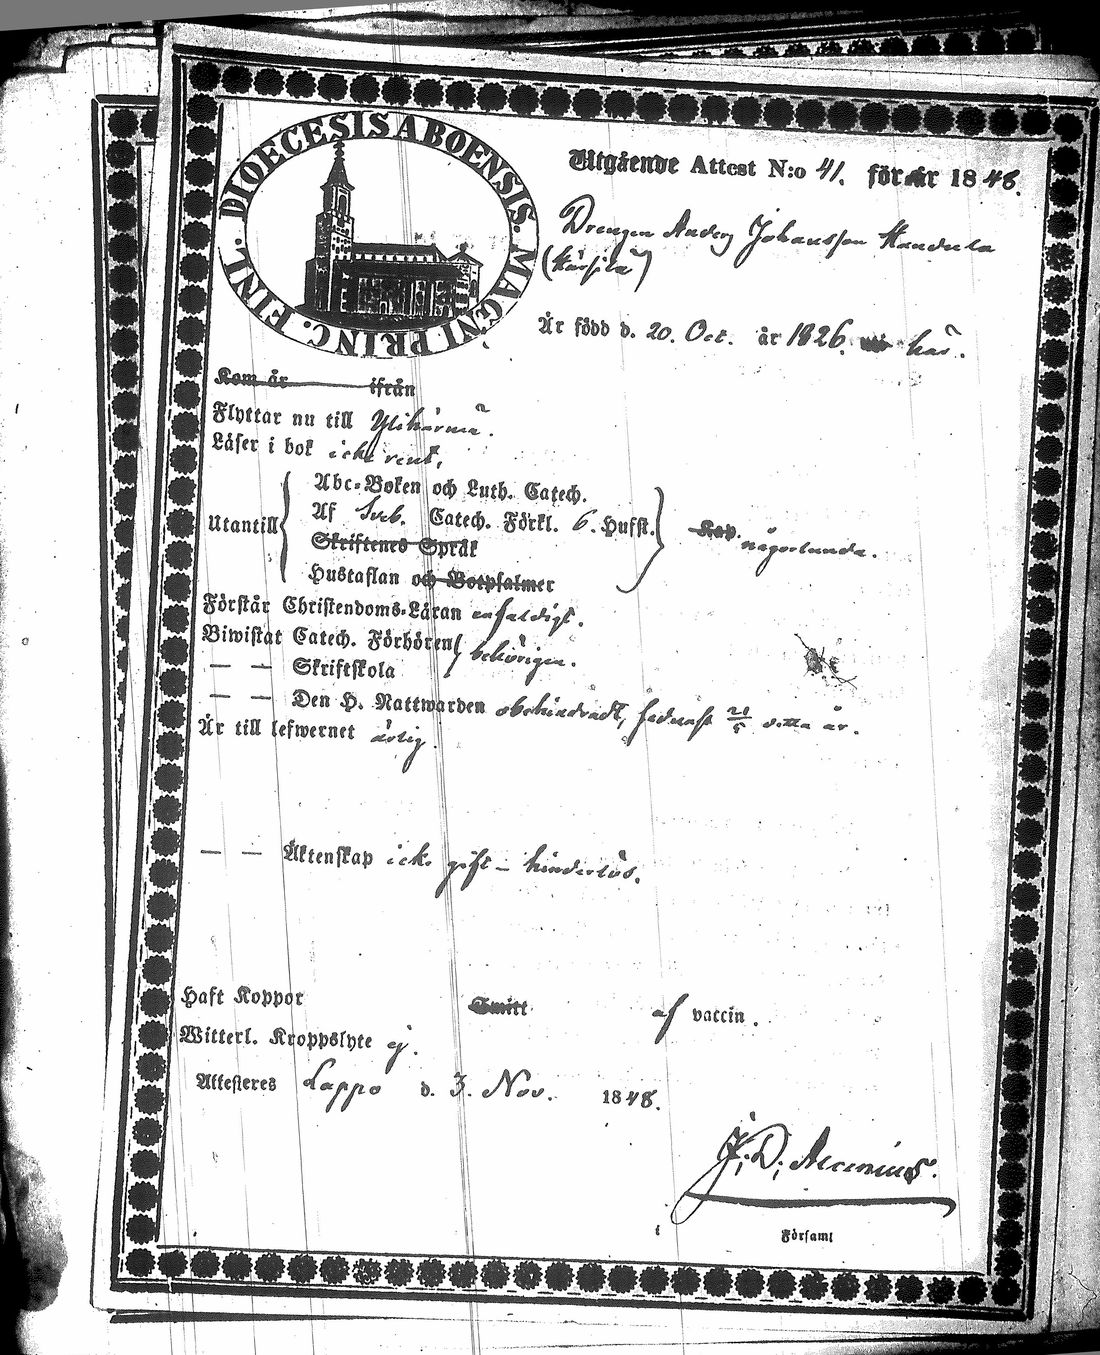 DIOECESIS ABOENSIS. MAGNI PRINC. FINL.
Utgående Attest N:o 41. för år 1848.
Drengen Anders Johansson Kandula
(Kärsilä)
Är född d. 20. Oct. år 1826. här.
Kom år ifrån
Flyttar nu till Ylihärmä.
Läser i bok icke rent,
Abc-Boken och Luth. Catech.
Utantill Af Sveb. Catech. Förkl. 6. Hufst. någorlunda.
Skriftenes Språk
Hustaflan och Botpsalmer
Förstår Christendoms-Läran enfaldigt.
Biwistat Catech. Förhören behörigen.
— — Skriftskola
— — Den H. Nattwarden obehindradt, sednast 21/5 detta år.
Är till lefwernet ärlig.
— — Äktenskap icke gift – hinderlös.
Haft Koppor Smitt af vaccin.
Witterl. Kroppslyte ej.
Attesteres Lappo d. 3. Nov. 1848.
J. D. Alcenius.
i Församl